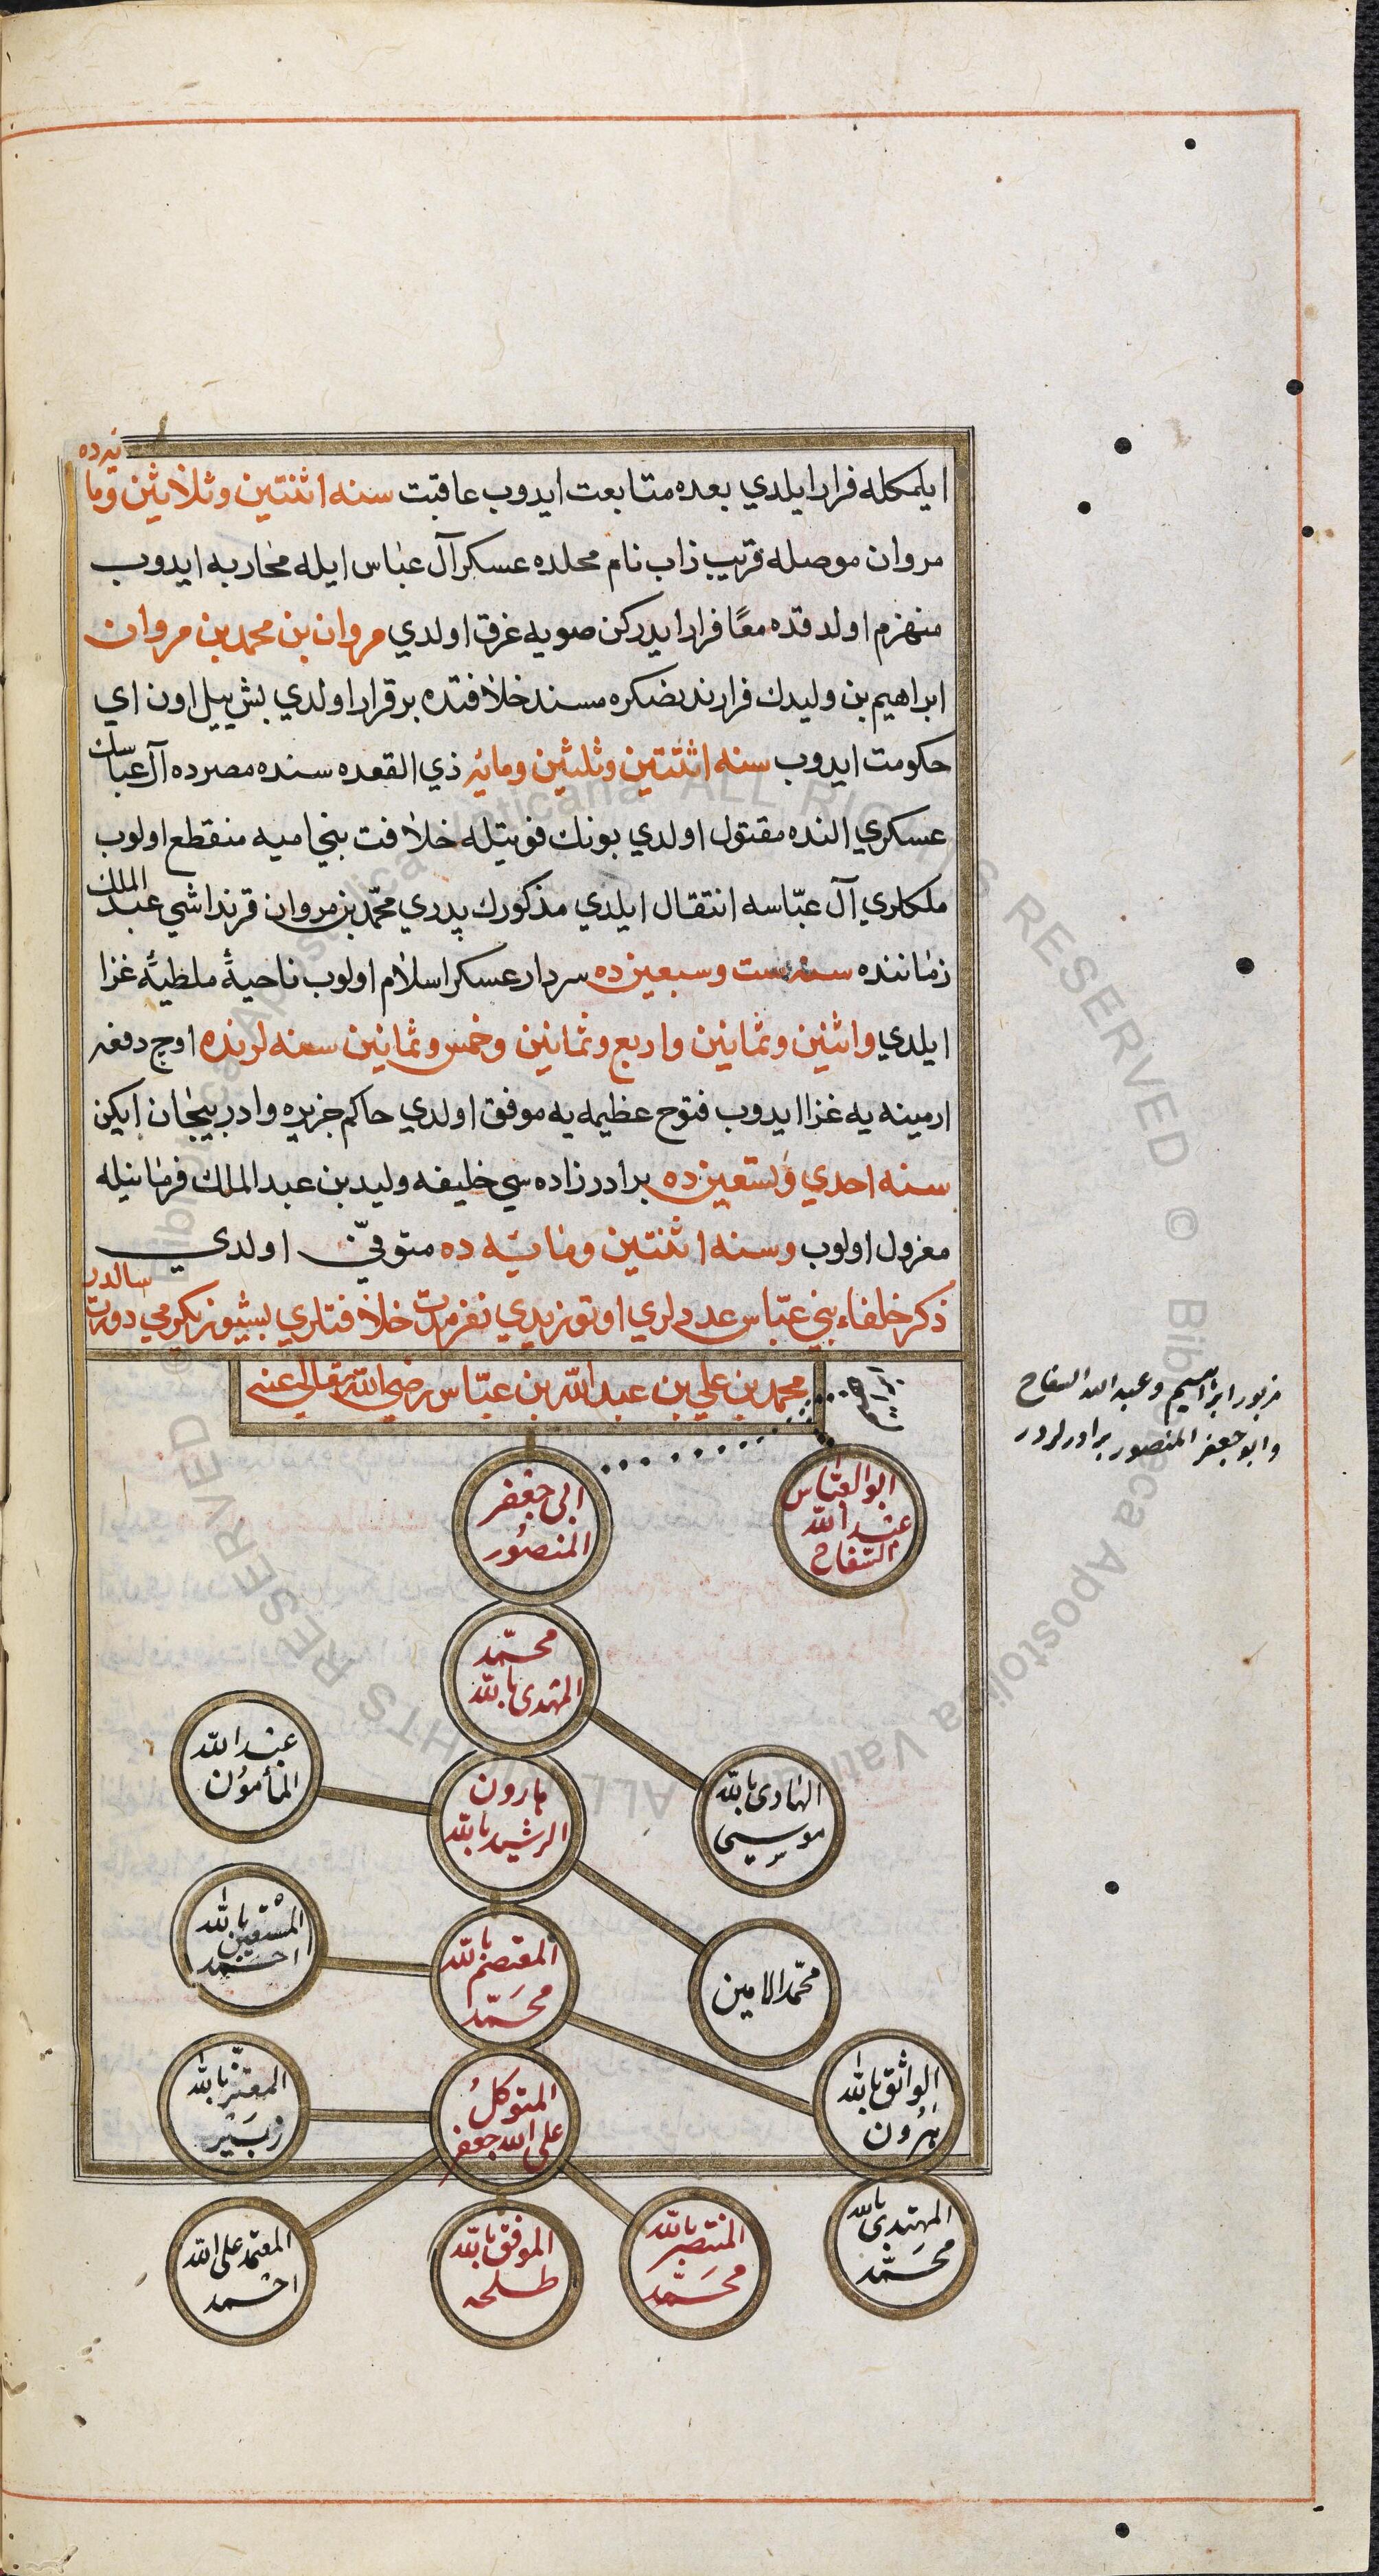 ايلمكله فرار ايلدي بعده متابعت ايدوب عاقبت سنه اثنتين وثلاثين وما
ئه ده
مروان موصله قريب زاب نام محلده عسكر آل عباس ايله محاربه ايدوب
منهزم اولدقده معًا فرار ايدركن صويه غرق اولدي مروان بن محمد بن مروان
ابراهيم بن وليدك فرارندنصكره مسند خلافتده برقرار اولدي بش ييل اون اي
حكومت ايدوب سنه اثنتين وثلثين ومائه ذي القعده سنده مصرده آل عباسك
عسكري النده مقتول اولدي بونك فوتيله خلافت بني اميه منقطع اولوب
ملكلري آل عبّاسه انتقال ايلدي مذكورك پدري محمّد بن مروان قرنداشي عبد الملك
زماننده سنه ست وسبعين ده سردار عسكر اسلام اولوب ناحيهٔ ملطيهٔ غزا
ايلدي واثنين وثمانين واربع وثمانين وخمس وثمانين سنه لرنده اوچ دفعه
ارمينه يه غزا ايدوب فتوح عظيمه يه موفق اولدي حاكم جزيره وادربيجان ايكن
سنه احدي وتسعين ده برادر زاده سي خليفه وليد بن عبد الملك فرمانيله
معزول اولوب وسنه اثنتين ومائه ده متوفّي اولدي
ذكر خلفاء بني عبّاس عددلري اوتوز يدي نفر مدت خلافتلري بشيوز يكرمي دورت سالدر
محمد بن علي بن عبد الله بن عبّاس رضي الله تعالي عنه
ابراهيم
مزبور ابراهيم وعبد الله السفاح
وابو جعفر المنصور برادرلردر
ابو العبّاس
عبد الله
السّفاح
ابى جعفر
المنصور
محمّد
المهدى بالله
عبد الله
المأمون
هارون
الرشيد بالله
الهادى بالله
موسى
المستعين بالله
احمد
المعتصم بالله
محمّد
محمّد الامين
المعتز بالله
زبير
المتوكل
على الله جعفر
الواثق بالله
هرون
المعتمد على الله
احمد
الموفق بالله
طلحه
المنتصر بالله
محمّد
المهتدى بالله
محمّد
© Biblioteca Apostolica Vaticana ALL RIGHTS RESERVED